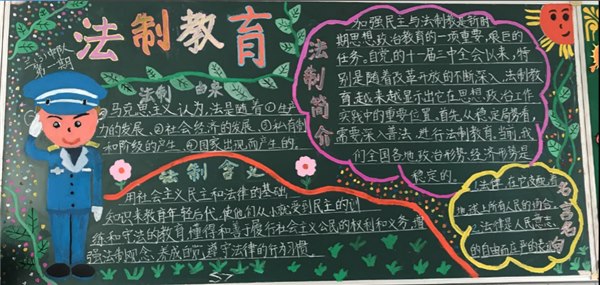 法制教育
三(3)中队
第一期
法制 由来
①马克思主义认为,法是随着①生产
力的发展、②社会经济的发展、③私有制
和阶级的产生、④国家出现而产生的。
法制含义
用社会主义民主和法律的基础
知识来教育年轻一代,使他们从小就受到民主的训
练和守法的教育,懂得和善于履行社会主义公民的权利和义务,增
强法制观念,养成自觉遵守法律的行为习惯。
法制简介
加强民主与法制教育是新时
期思想政治教育的一项重要、艰巨的
任务。自党的十一届三中全会以来,特
别是随着改革开放的不断深入,法制教
育越来越显示出它在思想政治工作
实践中的重要位置。首先,从稳定局势看,
需要深入普法,进行法制教育。当前,我
们全国各地,政治形势、经济形势是
稳定的。
名言名句
1.法律,在它支配着
地球上所有人民的场合
2.法律是人民意志
的自由而庄严的表现
57